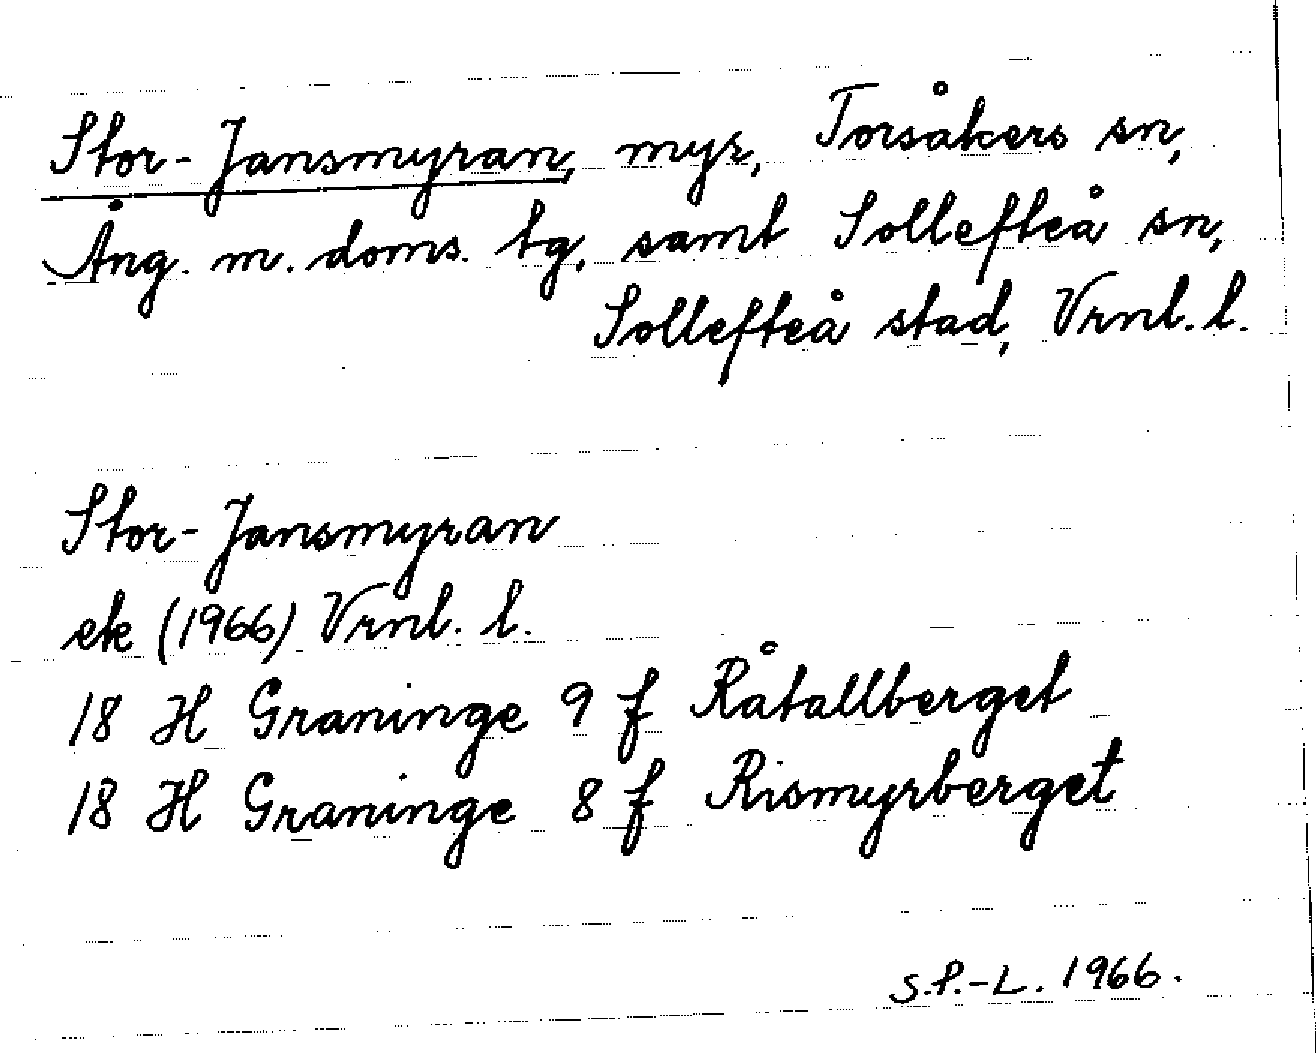 Stor-Jansmyran, myr, Torsåkers sn,
Ång. m. doms. tg, samt Sollefteå sn,
Sollefteå stad, Vrnl. l.
Stor-Jansmyran
ek (1966) Vrnl. l.
18 H Graninge 9 f Råtallberget
18 H Graninge 8 f Rismyrberget
S.P.-L. 1966.